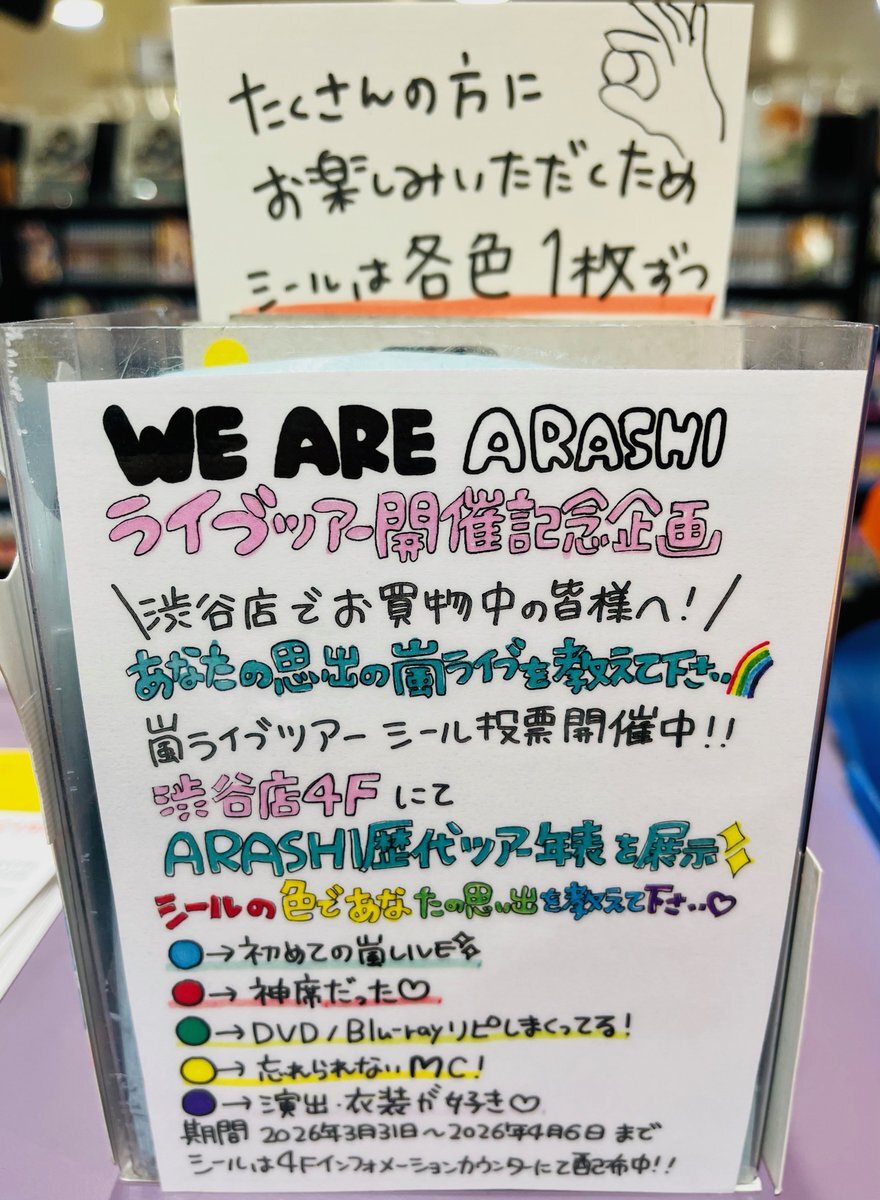 たくさんの方に
お楽しみいただくため
シールは各色1枚ずつ
WE ARE ARASHI
ライブツアー開催記念企画
\渋谷店でお買物中の皆様へ!/
あなたの思い出の嵐ライブを教えて下さい
嵐ライブツアー シール投票開催中!!
渋谷店4Fにて
ARASHI歴代ツアー年表を展示
シールの色であなたの思い出を教えて下さい♡
→初めての嵐LIVE
→神席だった♡
→DVD/Blu-rayリピしまくってる!
→忘れられないMC!
→演出・衣装が好き♡
期間 2026年3月31日~2026年4月6日まで
シールは4Fインフォメーションカウンターにて配布中!!